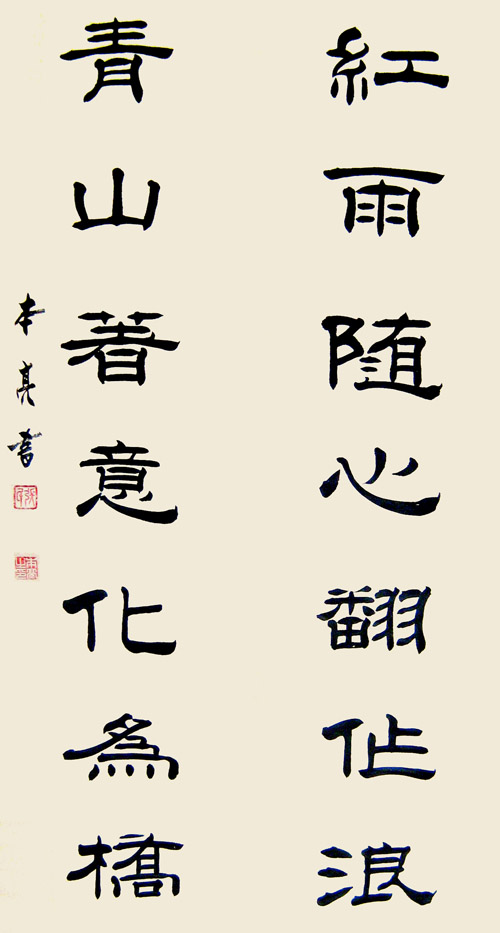 紅雨随心翻作浪
青山著意化為橋
本亮書